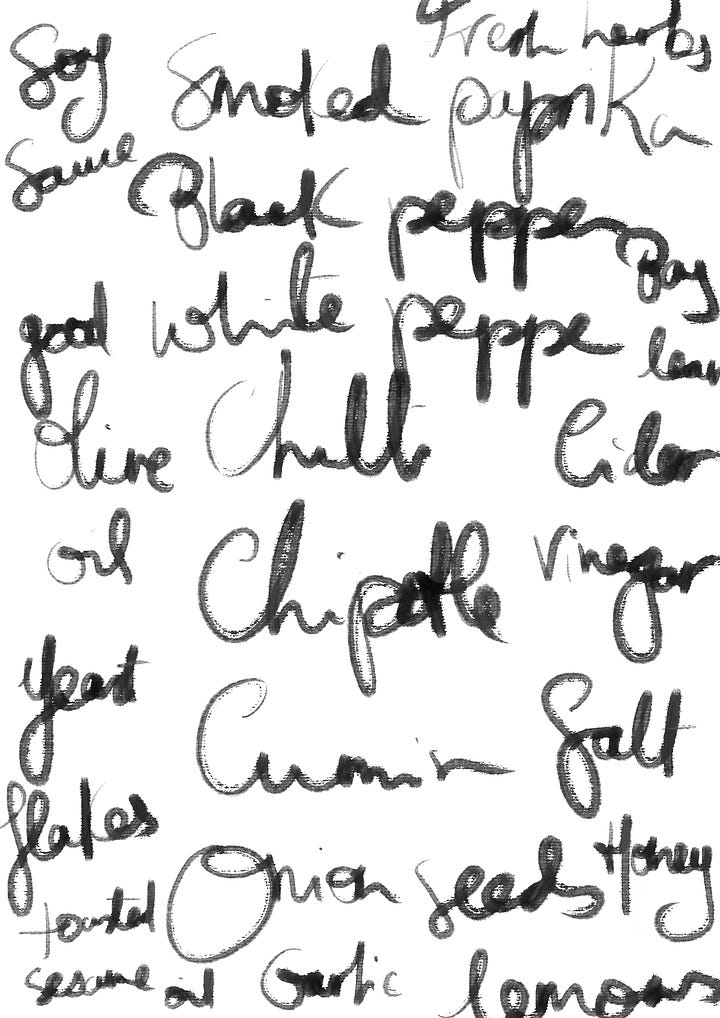 Fresh herbs
Soy
Sauce
Smoked paprika
Black pepper
Bay
good
Olive
oil
white peppe
Chilli
Cider
Vinegar
Chipotle
Yeast
flakes
Cumin
Salt
Onion seeds
Honey
toasted
sesame oil
Garlic
lemons